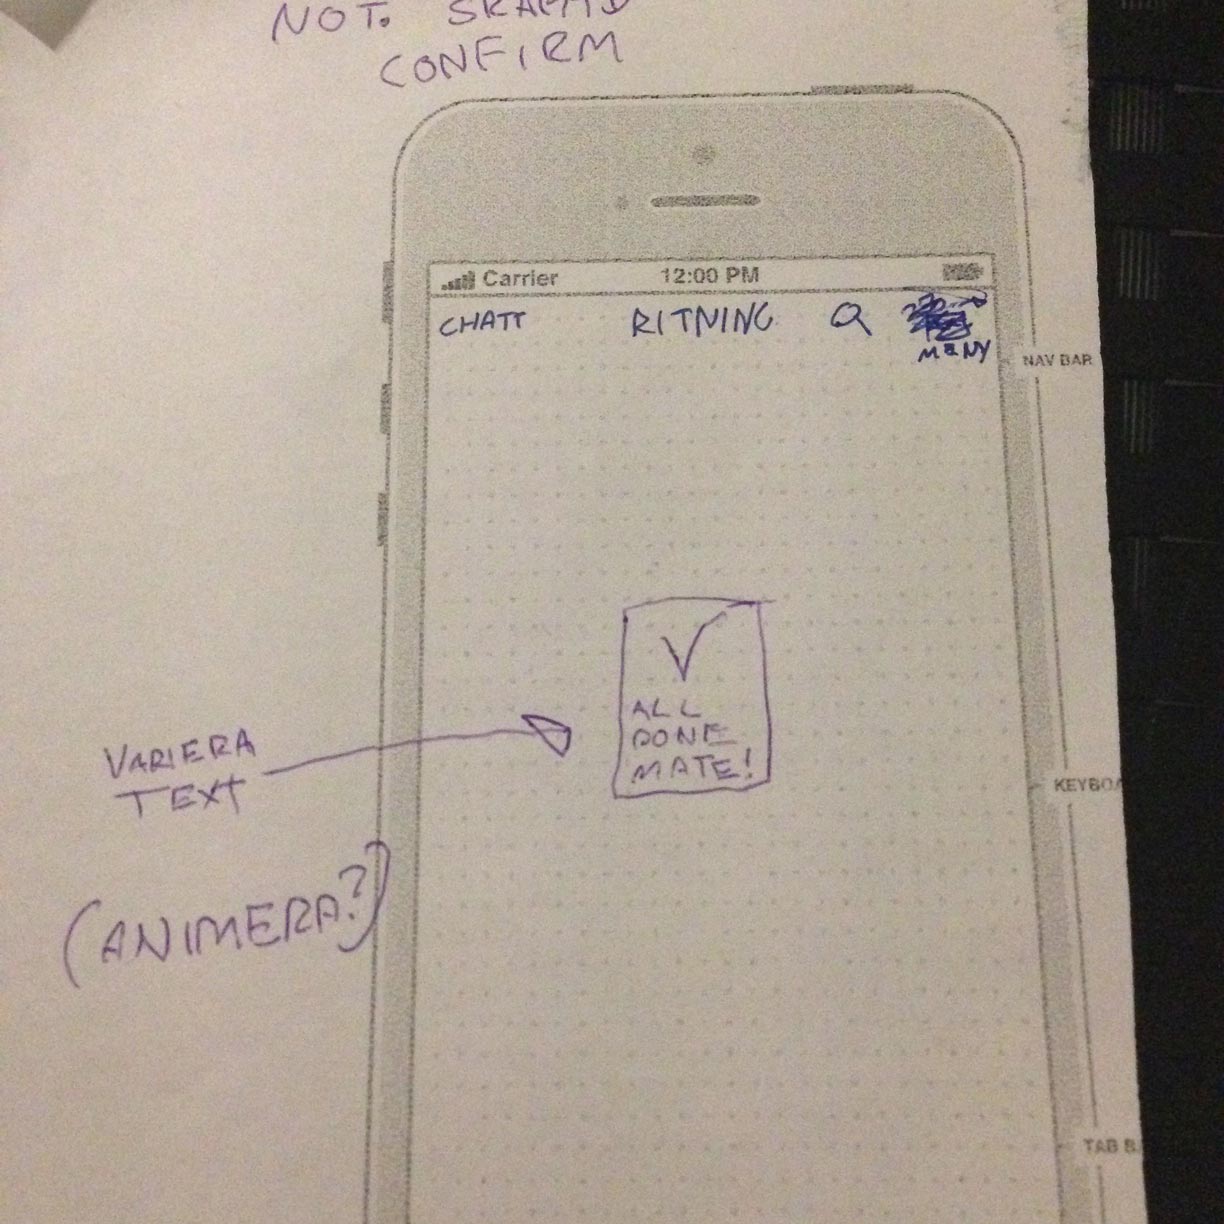 NOT. SKAPAD
CONFIRM
Carrier 12:00 PM
CHATT RITNING MENY
NAV BAR
ALL
DONE
MATE!
VARIERA
TEXT
KEYBOA
(ANIMERA?)
TAB B